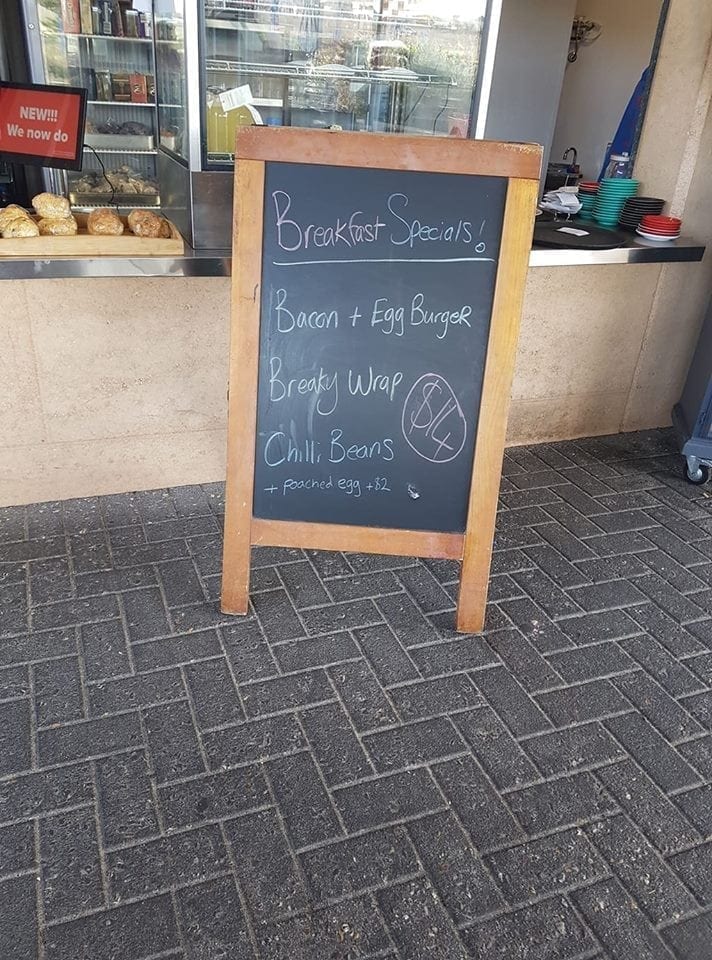 NEW!!!
We now do
Breakfast Specials!
Bacon + Egg Burger
Breaky Wrap
$14
Chilli Beans
+ Poached egg +$2